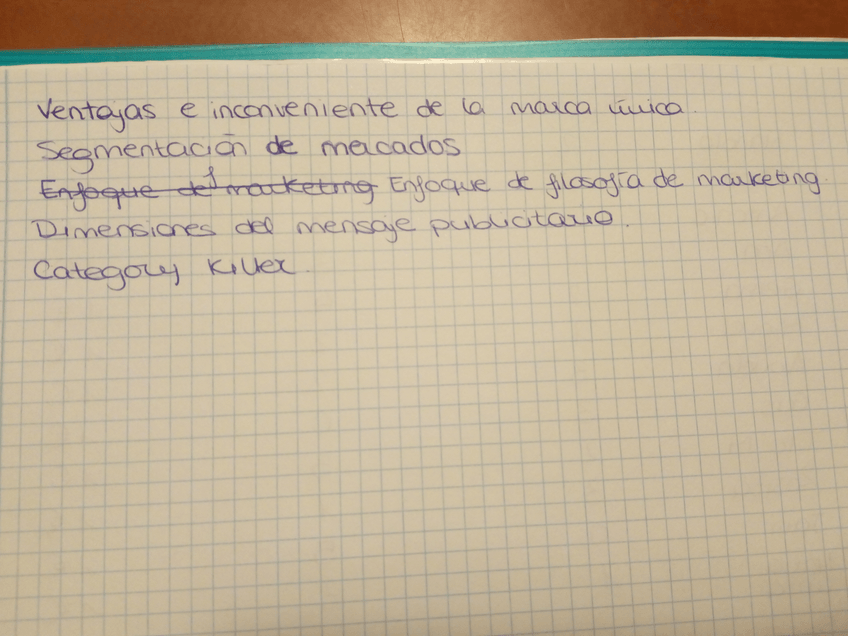 Ventajas e inconveniente de la marca única.
Segmentación de mercados
Enfoque del marketing Enfoque de filosofía de marketing.
Dimensiones del mensaje publicitario.
Category Killer.